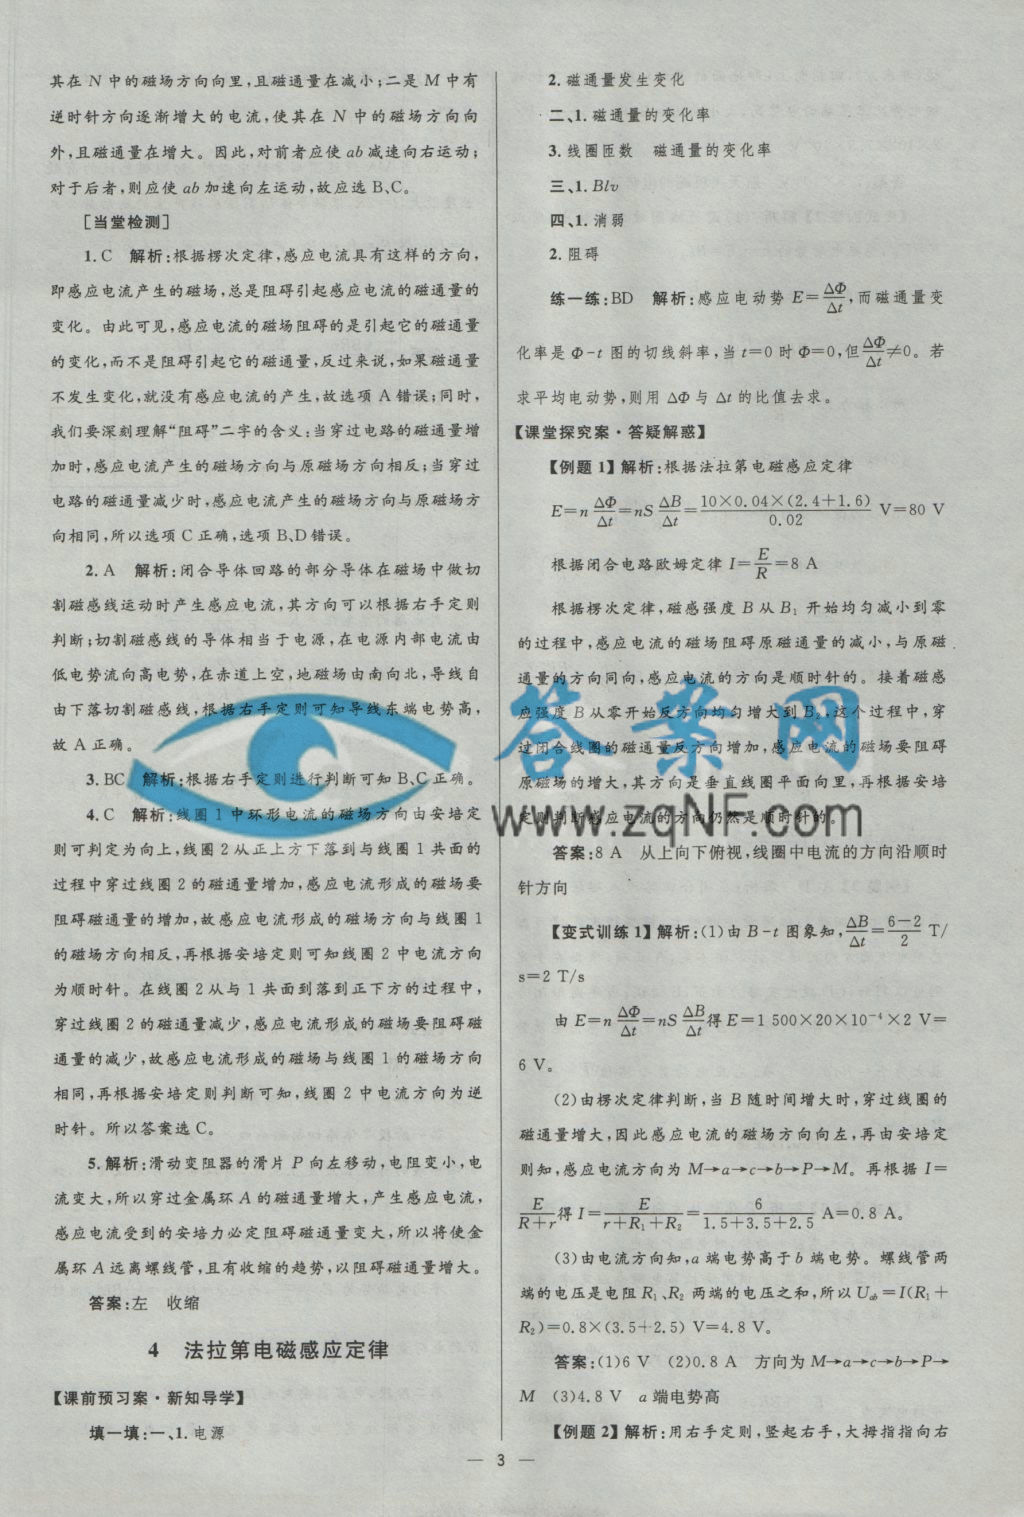 其在 N 中的磁场方向向里,且磁通量在减小;二是 M 中有
逆时针方向逐渐增大的电流,使其在 N 中的磁场方向向
外,且磁通量在增大。因此,对前者应使 ab 减速向右运动;
对于后者,则应使 ab 加速向左运动,故应选 B、C。
[当堂检测]
1.C 解析:根据楞次定律,感应电流具有这样的方向,
即感应电流产生的磁场,总是阻碍引起感应电流的磁通量的
变化。由此可见,感应电流的磁场阻碍的是引起它的磁通量
的变化,而不是阻碍引起它的磁通量,反过来说,如果磁通量
不发生变化,就没有感应电流的产生,故选项 A 错误;同时,
我们要深刻理解“阻碍”二字的含义:当穿过电路的磁通量增
加时,感应电流产生的磁场方向与原磁场方向相反;当穿过
电路的磁通量减少时,感应电流产生的磁场方向与原磁场方
向相同,所以选项 C 正确,选项 B、D 错误。
2.A 解析:闭合导体回路的部分导体在磁场中做切
割磁感线运动时产生感应电流,其方向可以根据右手定则
判断;切割磁感线的导体相当于电源,在电源内部电流由
低电势流向高电势,在赤道上空,地磁场由南向北,导线自
由下落切割磁感线,根据右手定则可知导线东端电势高,
故 A 正确。
3.BC 解析:根据右手定则进行判断可知 B、C 正确。
4.C 解析:线圈 1 中环形电流的磁场方向由安培定
则可判定为向上,线圈 2 从正上方下落到与线圈 1 共面的
过程中穿过线圈 2 的磁通量增加,感应电流形成的磁场要
阻碍磁通量的增加,故感应电流形成的磁场方向与线圈 1
的磁场方向相反,再根据安培定则可知线圈 2 中电流方向
为顺时针。在线圈 2 从与 1 共面到落到正下方的过程中,
穿过线圈 2 的磁通量减少,感应电流形成的磁场要阻碍磁
通量的减少,故感应电流形成的磁场与线圈 1 的磁场方向
相同,再根据安培定则判断可知,线圈 2 中电流方向为逆
时针。所以答案选 C。
5.解析:滑动变阻器的滑片 P 向左移动,电阻变小,电
流变大,所以穿过金属环 A 的磁通量增大,产生感应电流,
感应电流受到的安培力必定阻碍磁通量变大,所以将使金
属环 A 远离螺线管,且有收缩的趋势,以阻碍磁通量增大。
答案:左 收缩
4 法拉第电磁感应定律
【课前预习案·新知导学】
填一填:一、1.电源
2.磁通量发生变化
二、1.磁通量的变化率
3.线圈匝数 磁通量的变化率
三、1.Blv
四、1.消弱
2.阻碍
练一练:BD 解析:感应电动势 E=ΔΦ/Δt,而磁通量变
化率是 Φ-t 图的切线斜率,当 t=0 时 Φ=0,但ΔΦ/Δt≠0。若
求平均电动势,则用 ΔΦ 与 Δt 的比值去求。
【课堂探究案·答疑解惑】
【例题 1】解析:根据法拉第电磁感应定律
E=n ΔΦ/Δt=nS ΔB/Δt=10×0.04×(2.4+1.6)/0.02 V=80 V
根据闭合电路欧姆定律 I=E/R=8 A
根据楞次定律,磁感强度 B 从 B₁ 开始均匀减小到零
的过程中,感应电流的磁场阻碍原磁通量的减小,与原磁
通量的方向同向,感应电流的方向是顺时针的。接着磁感
应强度 B 从零开始反方向均匀增大到 B₂,这个过程中,穿
过闭合线圈的磁通量反方向增加,感应电流的磁场要阻碍
原磁场的增大,其方向是垂直线圈平面向里,再根据安培
定则判断感应电流的方向仍然是顺时针的。
答案:8 A 从上向下俯视,线圈中电流的方向沿顺时
针方向
【变式训练 1】解析:(1)由 B-t 图象知,ΔB/Δt=6-2/2 T/
s=2 T/s
由 E=n ΔΦ/Δt=nS ΔB/Δt得 E=1 500×20×10⁻⁴×2 V=
6 V。
(2)由楞次定律判断,当 B 随时间增大时,穿过线圈的
磁通量增大,因此感应电流的磁场方向向左,再由安培定
则知,感应电流方向为 M→a→c→b→P→M。再根据 I=
E/R+r得 I=E/r+R₁+R₂=6/1.5+3.5+2.5 A=0.8 A。
(3)由电流方向知,a 端电势高于 b 端电势。螺线管两
端的电压是电阻 R₁、R₂ 两端的电压之和,所以 Uab=I(R₁+
R₂)=0.8×(3.5+2.5) V=4.8 V。
答案:(1)6 V (2)0.8 A 方向为 M→a→c→b→P→
M (3)4.8 V a 端电势高
【例题 2】解析:用右手定则,竖起右手,大拇指指向右
— 3 —
答案网
www.zqNF.com